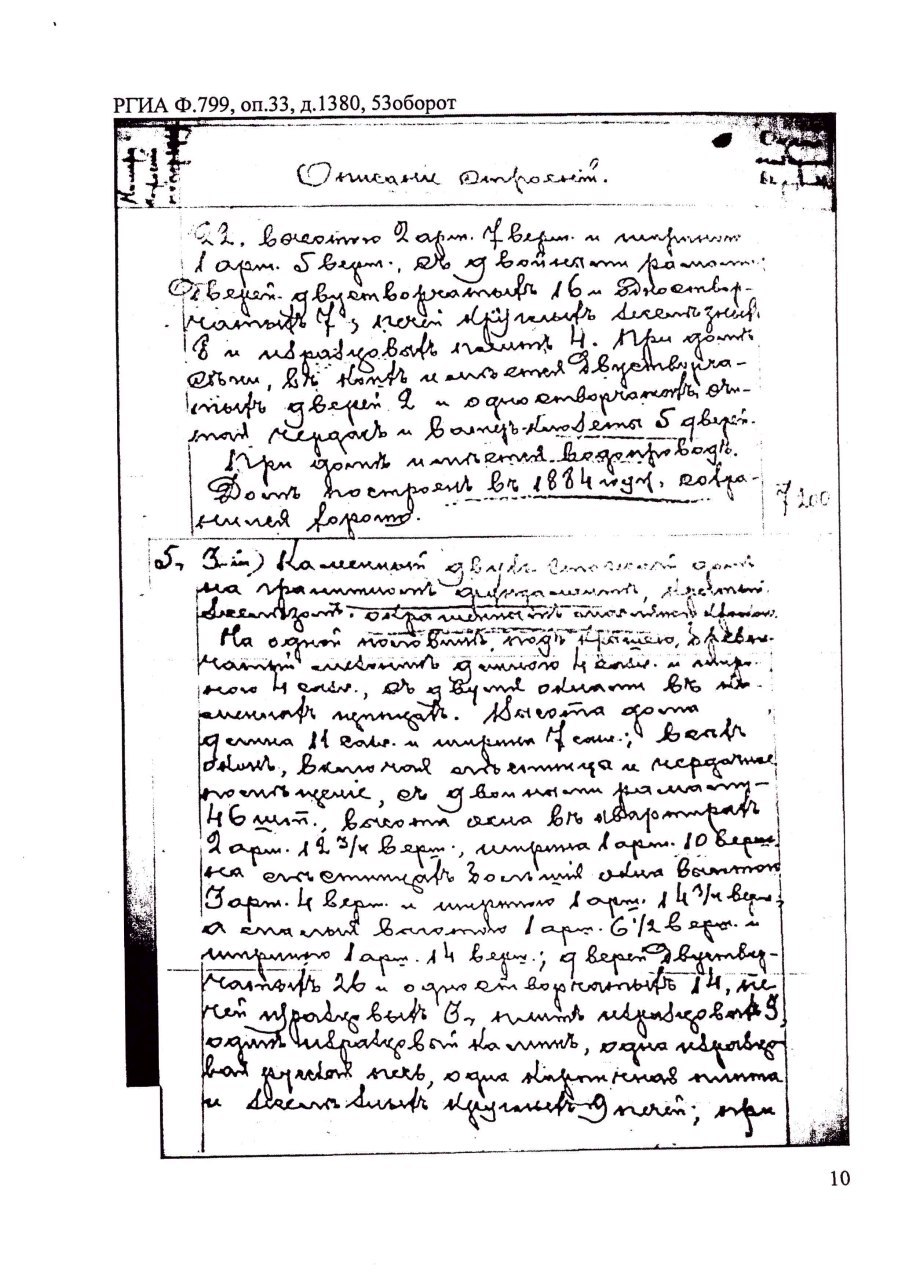 РГИА Ф.799, оп.33, д.1380, 53оборот
Описаніе строеній.
22, высотою 2 арш. 7 верш. и шириною
1 арш. 5 верш., съ двойными рамами;
дверей двустворчатыхъ 16 и одноствор-
чатыхъ 7, печей круглыхъ желѣзныхъ
8 и изразцовыхъ плитъ 4. При домѣ
сѣни, въ коихъ имѣется двустворча-
тыхъ дверей 2 и одностворчатыхъ,
чердакъ и ватеръ-клозеты 5 дверей.
При домѣ имѣется водопроводъ.
Домъ построенъ въ 1884 году, сохра-
нился хорошо.
7200
5, 3-й) Каменный двухъ этажный домъ
на гранитномъ фундаментѣ, крытый
желѣзомъ, окрашеннымъ масляной краской.
На одной половинѣ, подъ крышею, бревен-
чатый мезонинъ длиною 4 саж. и шири-
ною 4 саж., съ двумя окнами въ ка-
менныхъ Высота дома
длина 11 саж. и ширина 7 саж.; всѣхъ
оконъ, включая лѣстницы и чердачное
помѣщеніе, съ двойными рамами,-
46 шт., высота окна въ квартирахъ
2 арш. 12 3/4 верш., ширина 1 арш. 10 верш.
на лѣстницахъ большія окна высотою
3 арш. 4 верш. и шириною 1 арш. 14 3/4 верш.,
а малыя высотою 1 арш. 6 1/2 верш. и
шириною 1 арш. 14 верш.; дверей двуствор-
чатыхъ 26 и одностворчатыхъ 14, пе-
чей изразцовыхъ плитъ изразцовыхъ
одинъ изразцовый каминъ, одна изразцо-
вая русская печь, одна кирпичная плита
и желѣзныхъ круглыхъ 9 печей; при
10